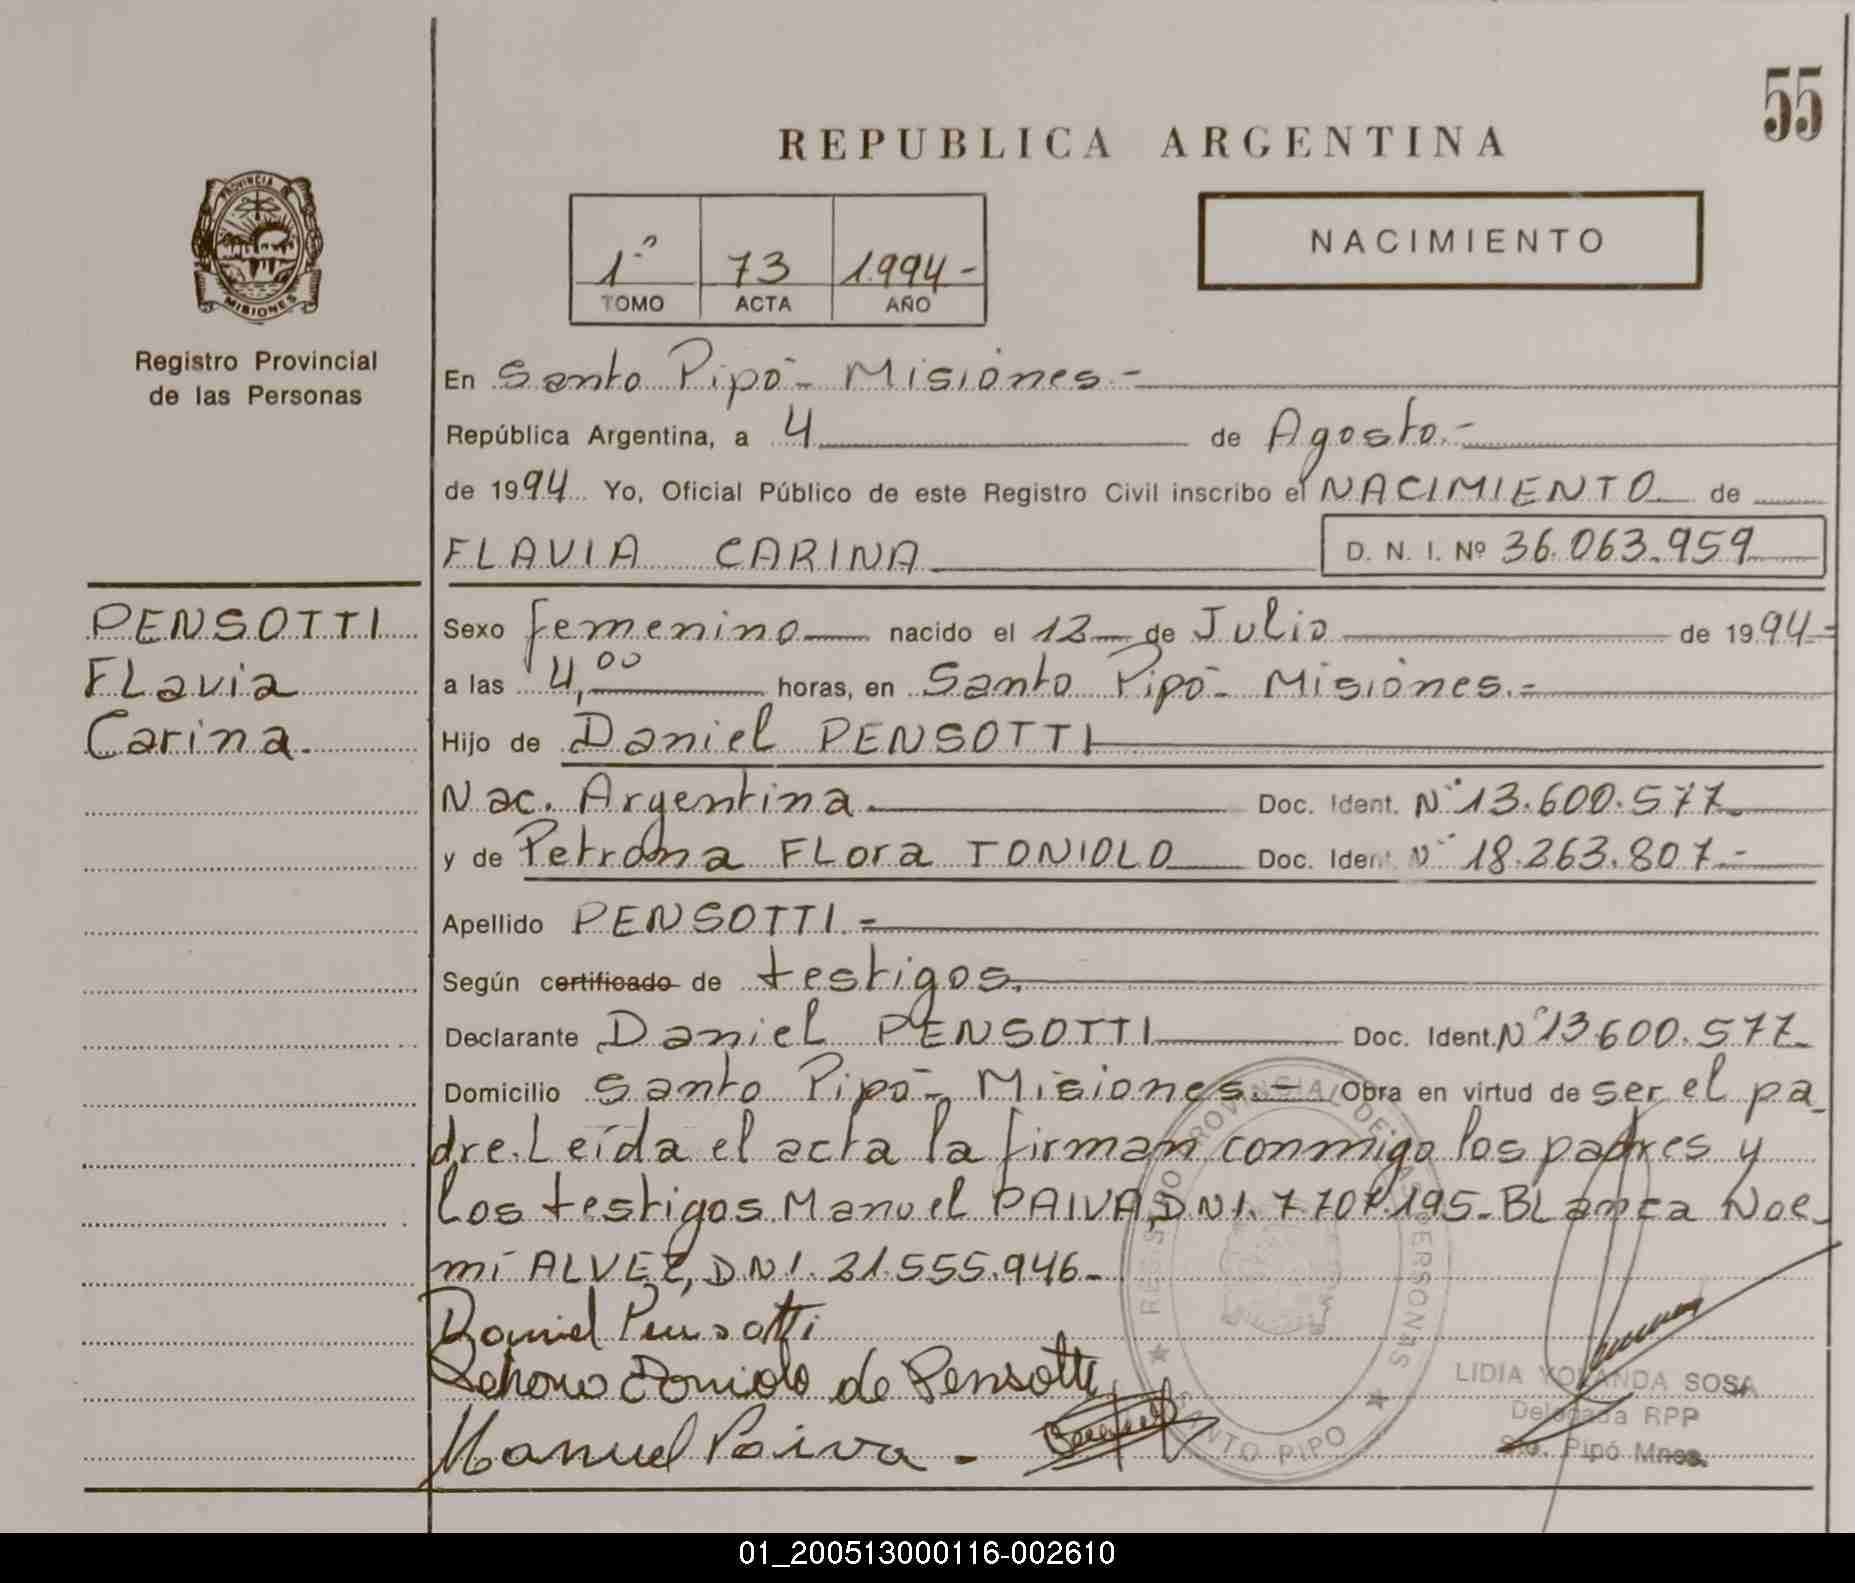 55
REPUBLICA ARGENTINA
PROVINCIA DE
MISIONES
1º 73 1.994-
TOMO ACTA AÑO
NACIMIENTO
Registro Provincial
de las Personas
En Santo Pipó- Misiones.-
República Argentina, a 4 de Agosto.-
de 1994 Yo, Oficial Público de este Registro Civil inscribo el NACIMIENTO de
FLAVIA CARINA D. N. I. Nº 36.063.959
PENSOTTI
Flavia
Carina.
Sexo femenino nacido el 12 de Julio de 1994-
a las 4,00 horas, en Santo Pipó- Misiones.-
Hijo de Daniel PENSOTTI
Nac. Argentina. Doc. Ident. Nº 13.600.577-
y de Petrona Flora TONIOLO Doc. Ident. Nº 18.263.807.-
Apellido PENSOTTI.-
Según certificado de testigos.
Declarante Daniel PENSOTTI Doc. Ident. Nº 13.600.577-
Domicilio Santo Pipó- Misiones.- Obra en virtud de ser el pa-
dre. Leída el acta la firman conmigo los padres y
los testigos Manuel PAIVA, DNI. 7.707.195- Blanca Noe-
mí ALVEZ, DNI. 21.555.946-
Daniel Pensotti
Petrona Toniolo de Pensotti
Manuel Paiva -
REGISTRO PROVINCIAL DE LAS PERSONAS
SANTO PIPO
LIDIA YOLANDA SOSA
Delegada RPP
Sto. Pipó Mnes.
01_200513000116-002610